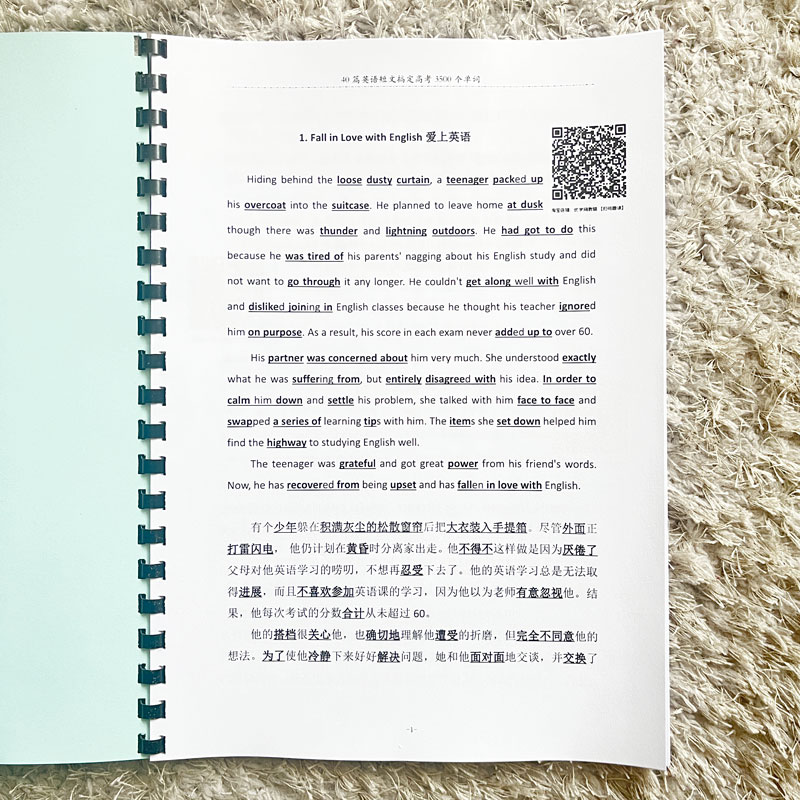 40 篇英语短文搞定高考 3500 个单词
1. Fall in Love with English 爱上英语
Hiding behind the loose dusty curtain, a teenager packed up
his overcoat into the suitcase. He planned to leave home at dusk
though there was thunder and lightning outdoors. He had got to do this
because he was tired of his parents' nagging about his English study and did
not want to go through it any longer. He couldn't get along well with English
and disliked joining in English classes because he thought his teacher ignored
him on purpose. As a result, his score in each exam never added up to over 60.
His partner was concerned about him very much. She understood exactly
what he was suffering from, but entirely disagreed with his idea. In order to
calm him down and settle his problem, she talked with him face to face and
swapped a series of learning tips with him. The items she set down helped him
find the highway to studying English well.
The teenager was grateful and got great power from his friend's words.
Now, he has recovered from being upset and has fallen in love with English.
有个少年躲在积满灰尘的松散窗帘后把大衣装入手提箱。尽管外面正
打雷闪电， 他仍计划在黄昏时分离家出走。他不得不这样做是因为厌倦了
父母对他英语学习的唠叨，不想再忍受下去了。他的英语学习总是无法取
得进展，而且不喜欢参加英语课的学习，因为他以为老师有意忽视他。结
果，他每次考试的分数合计从未超过 60。
他的搭档很关心他，也确切地理解他遭受的折磨，但完全不同意他的
想法。为了使他冷静下来好好解决问题，她和他面对面地交谈，并交换了
-1-